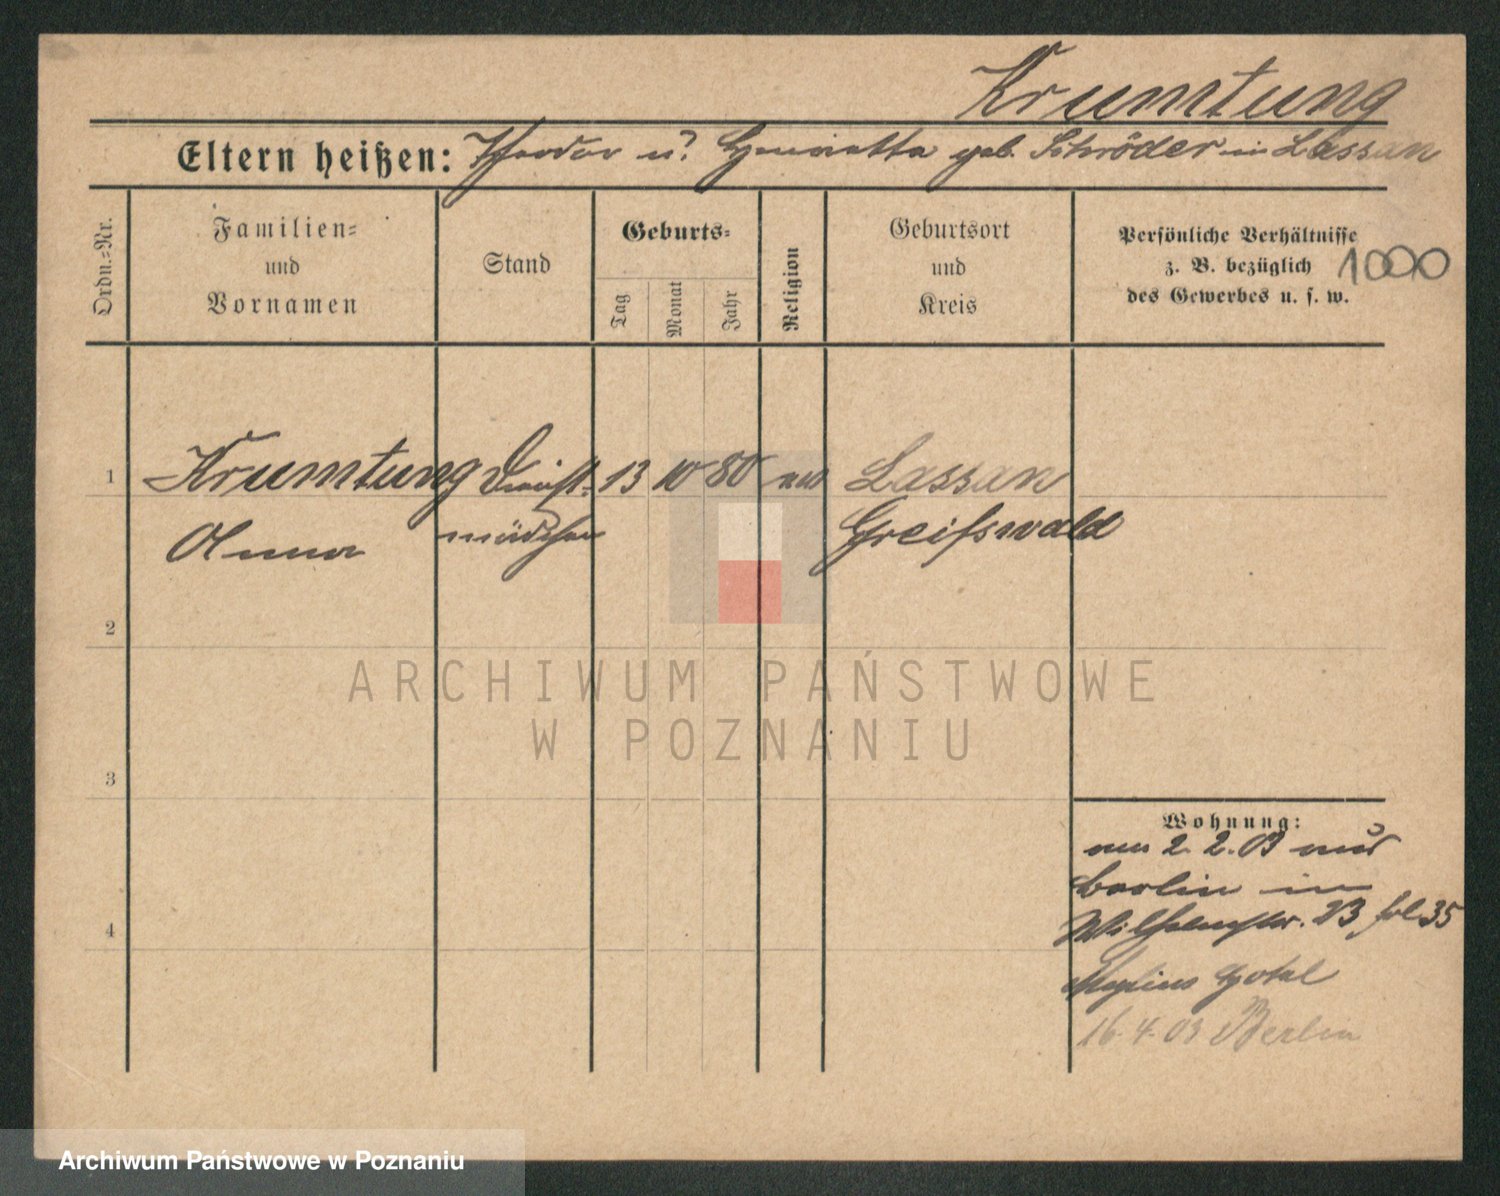 Krumtung
Eltern heißen: Theodor u. Henrietta geb. Schröder in Lassan
Ordn.-Nr.
Familien-
und
Vornamen
Stand
Geburts-
Tag
Monat
Jahr
Religion
Geburtsort
und
Kreis
Persönliche Verhältnisse
z. B. bezüglich
des Gewerbes u. s. w.
1000
1 Krumtung Dienst- 13 10 80 ev Lassan
Anna mädchen Greifswald
2
3
4
Wohnung:
am 2. 2. 03 aus
Berlin in
Wilhelmstr. 23 35
Mylius Hotel
16. 4. 03 Berlin
ARCHIWUM PAŃSTWOWE
W POZNANIU
Archiwum Państwowe w Poznaniu